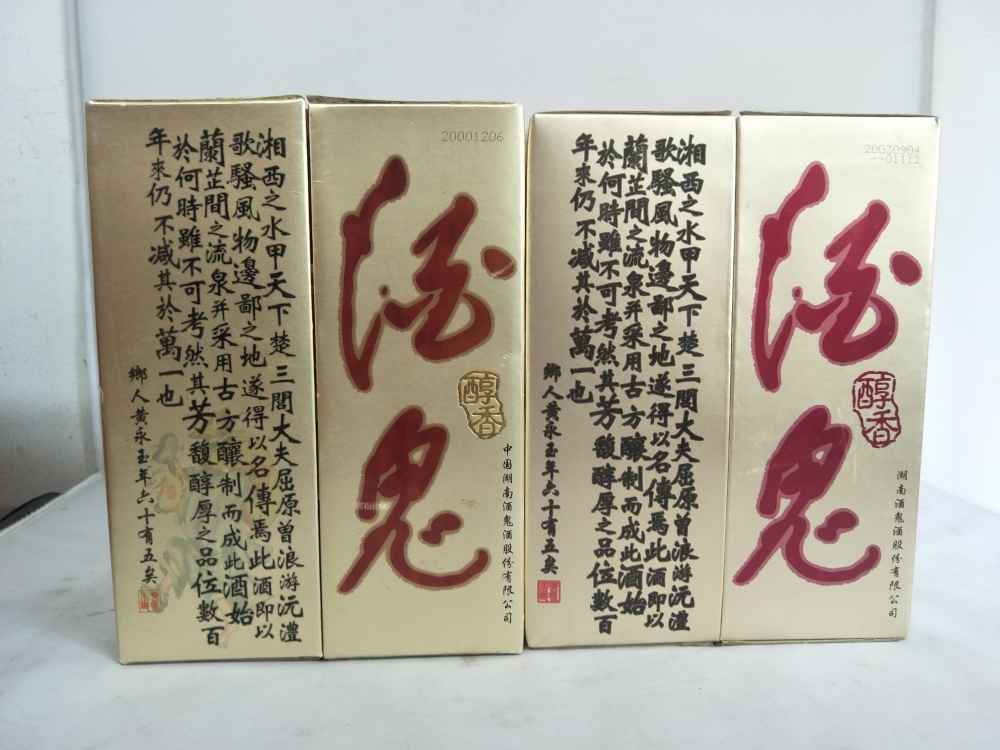 湘西之水甲天下楚三閭大夫屈原曾浪游沅澧
歌騷風物邊鄙之地遂得以名傳焉此酒即以
蘭芷間之流泉并采用古方釀制而成此酒始
於何時雖不可考然其芳馥醇厚之品位數百
年來仍不减其於萬一也
鄉人黄永玉年六十有五矣
20001206
酒鬼
醇香
中国湖南酒鬼酒股份有限公司
湘西之水甲天下楚三閭大夫屈原曾浪游沅澧
歌騷風物邊鄙之地遂得以名傳焉此酒即以
蘭芷間之流泉并采用古方釀制而成此酒始
於何時雖不可考然其芳馥醇厚之品位數百
年來仍不减其於萬一也
鄉人黄永玉年六十有五矣
20020904
酒鬼
醇香
湖南酒鬼酒股份有限公司